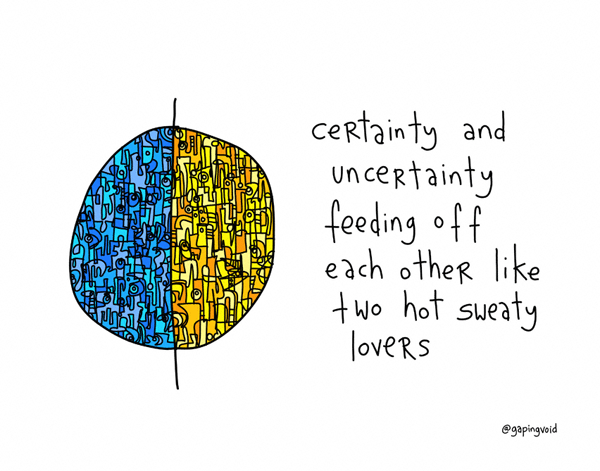 certainty and
uncertainty
feeding off
each other like
two hot sweaty
lovers
@gapingvoid